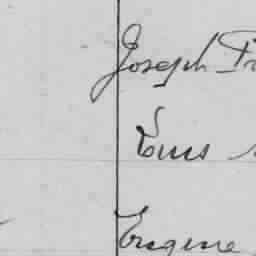 Joseph
Louis
Eugene